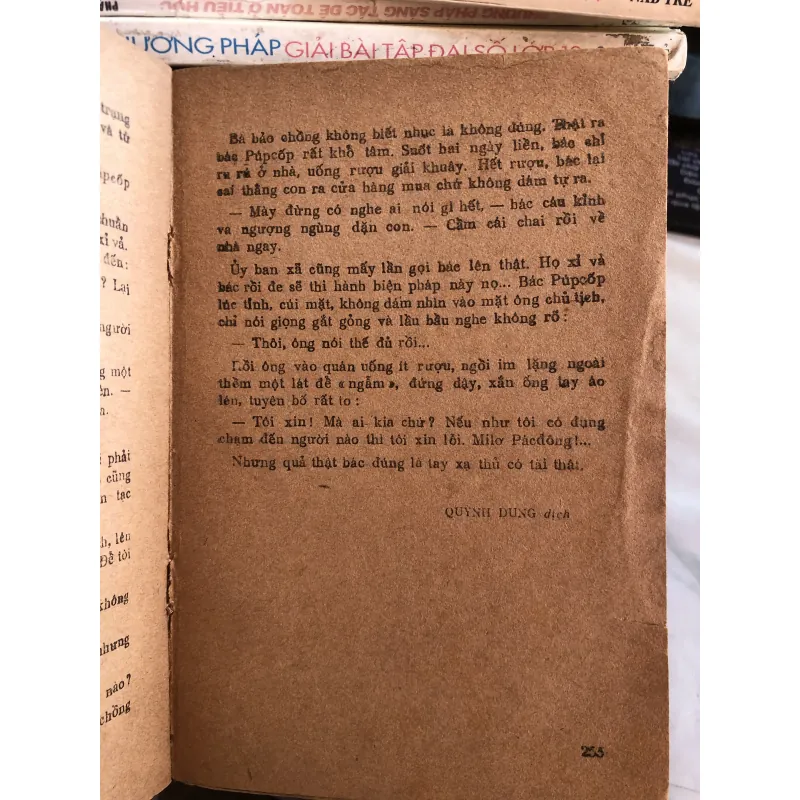 PHƯƠNG PHÁP SÁNG TÁC ĐỀ TOÁN Ở TIỂU HỌC
NXB TRẺ
ƯƠNG PHÁP GIẢI BÀI TẬP ĐẠI SỐ LỚP 10
trung
và tử
úpcốp
chuẩn
xỉ vả.
đến:
? Lại
người
g một
ên. —
phải
cũng
n tạc
h, lên
Để tôi
không
nhưng
nào?
chồng
Bà bảo chồng không biết nhục là không đúng. Thật ra
bác Púpcốp rất khổ tâm. Suốt hai ngày liền, bác chỉ
ru rú ở nhà, uống rượu giải khuây. Hết rượu, bác lại
sai thằng con ra cửa hàng mua chứ không dám tự ra.
— Mày đừng có nghe ai nói gì hết, — bác cáu kỉnh
và ngượng ngùng dặn con. — Cầm cái chai rồi về
nhà ngay.
Ủy ban xã cũng mấy lần gọi bác lên thật. Họ xỉ vả
bác rồi đe sẽ thi hành biện pháp này nọ... Bác Púpcốp
lúc tỉnh, cúi mặt, không dám nhìn vào mặt ông chủ tịch,
chỉ nói giọng gắt gỏng và lầu bầu nghe không rõ:
— Thôi, ông nói thế đủ rồi...
Rồi ông vào quán uống ít rượu, ngồi im lặng ngoài
thềm một lát để «ngấm», đứng dậy, xắn ống tay áo
lên, tuyên bố rất to:
— Tôi xin! Mà ai kia chứ? Nếu như tôi có đụng
chạm đến người nào thì tôi xin lỗi. Milơ Pácđông!...
Nhưng quả thật bác đúng là tay xạ thủ có tài thật.
QUỲNH DUNG dịch
255